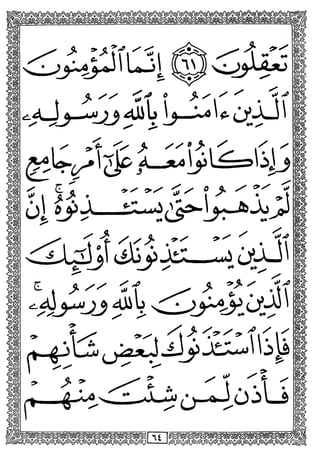 تَعْقِلُونَ ٦١ إِنَّمَا ٱلْمُؤْمِنُونَ
ٱلَّذِينَ ءَامَنُوا۟ بِٱللَّهِ وَرَسُولِهِۦ
وَإِذَا كَانُوا۟ مَعَهُۥ عَلَىٰٓ أَمْرٍ جَامِعٍ
لَّمْ يَذْهَبُوا۟ حَتَّىٰ يَسْتَـْٔذِنُوهُ ۚ إِنَّ
ٱلَّذِينَ يَسْتَـْٔذِنُونَكَ أُو۟لَـٰٓئِكَ
ٱلَّذِينَ يُؤْمِنُونَ بِٱللَّهِ وَرَسُولِهِۦ ۚ
فَإِذَا ٱسْتَـْٔذَنُوكَ لِبَعْضِ شَأْنِهِمْ
فَأْذَن لِّمَن شِئْتَ مِنْهُمْ
٦٤